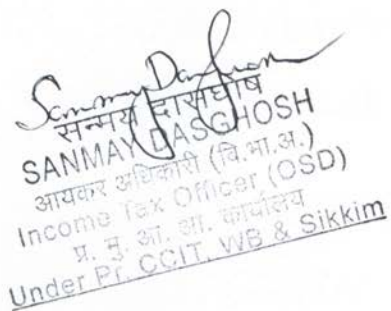 Sanmay Dasghosh
सन्मय दासघोष
SANMAY DASGHOSH
आयकर अधिकारी (वि.भा.अ.)
Income Tax Officer (OSD)
प्र. मु. आ. आ. कार्यालय
Under Pr. CCIT, WB & Sikkim